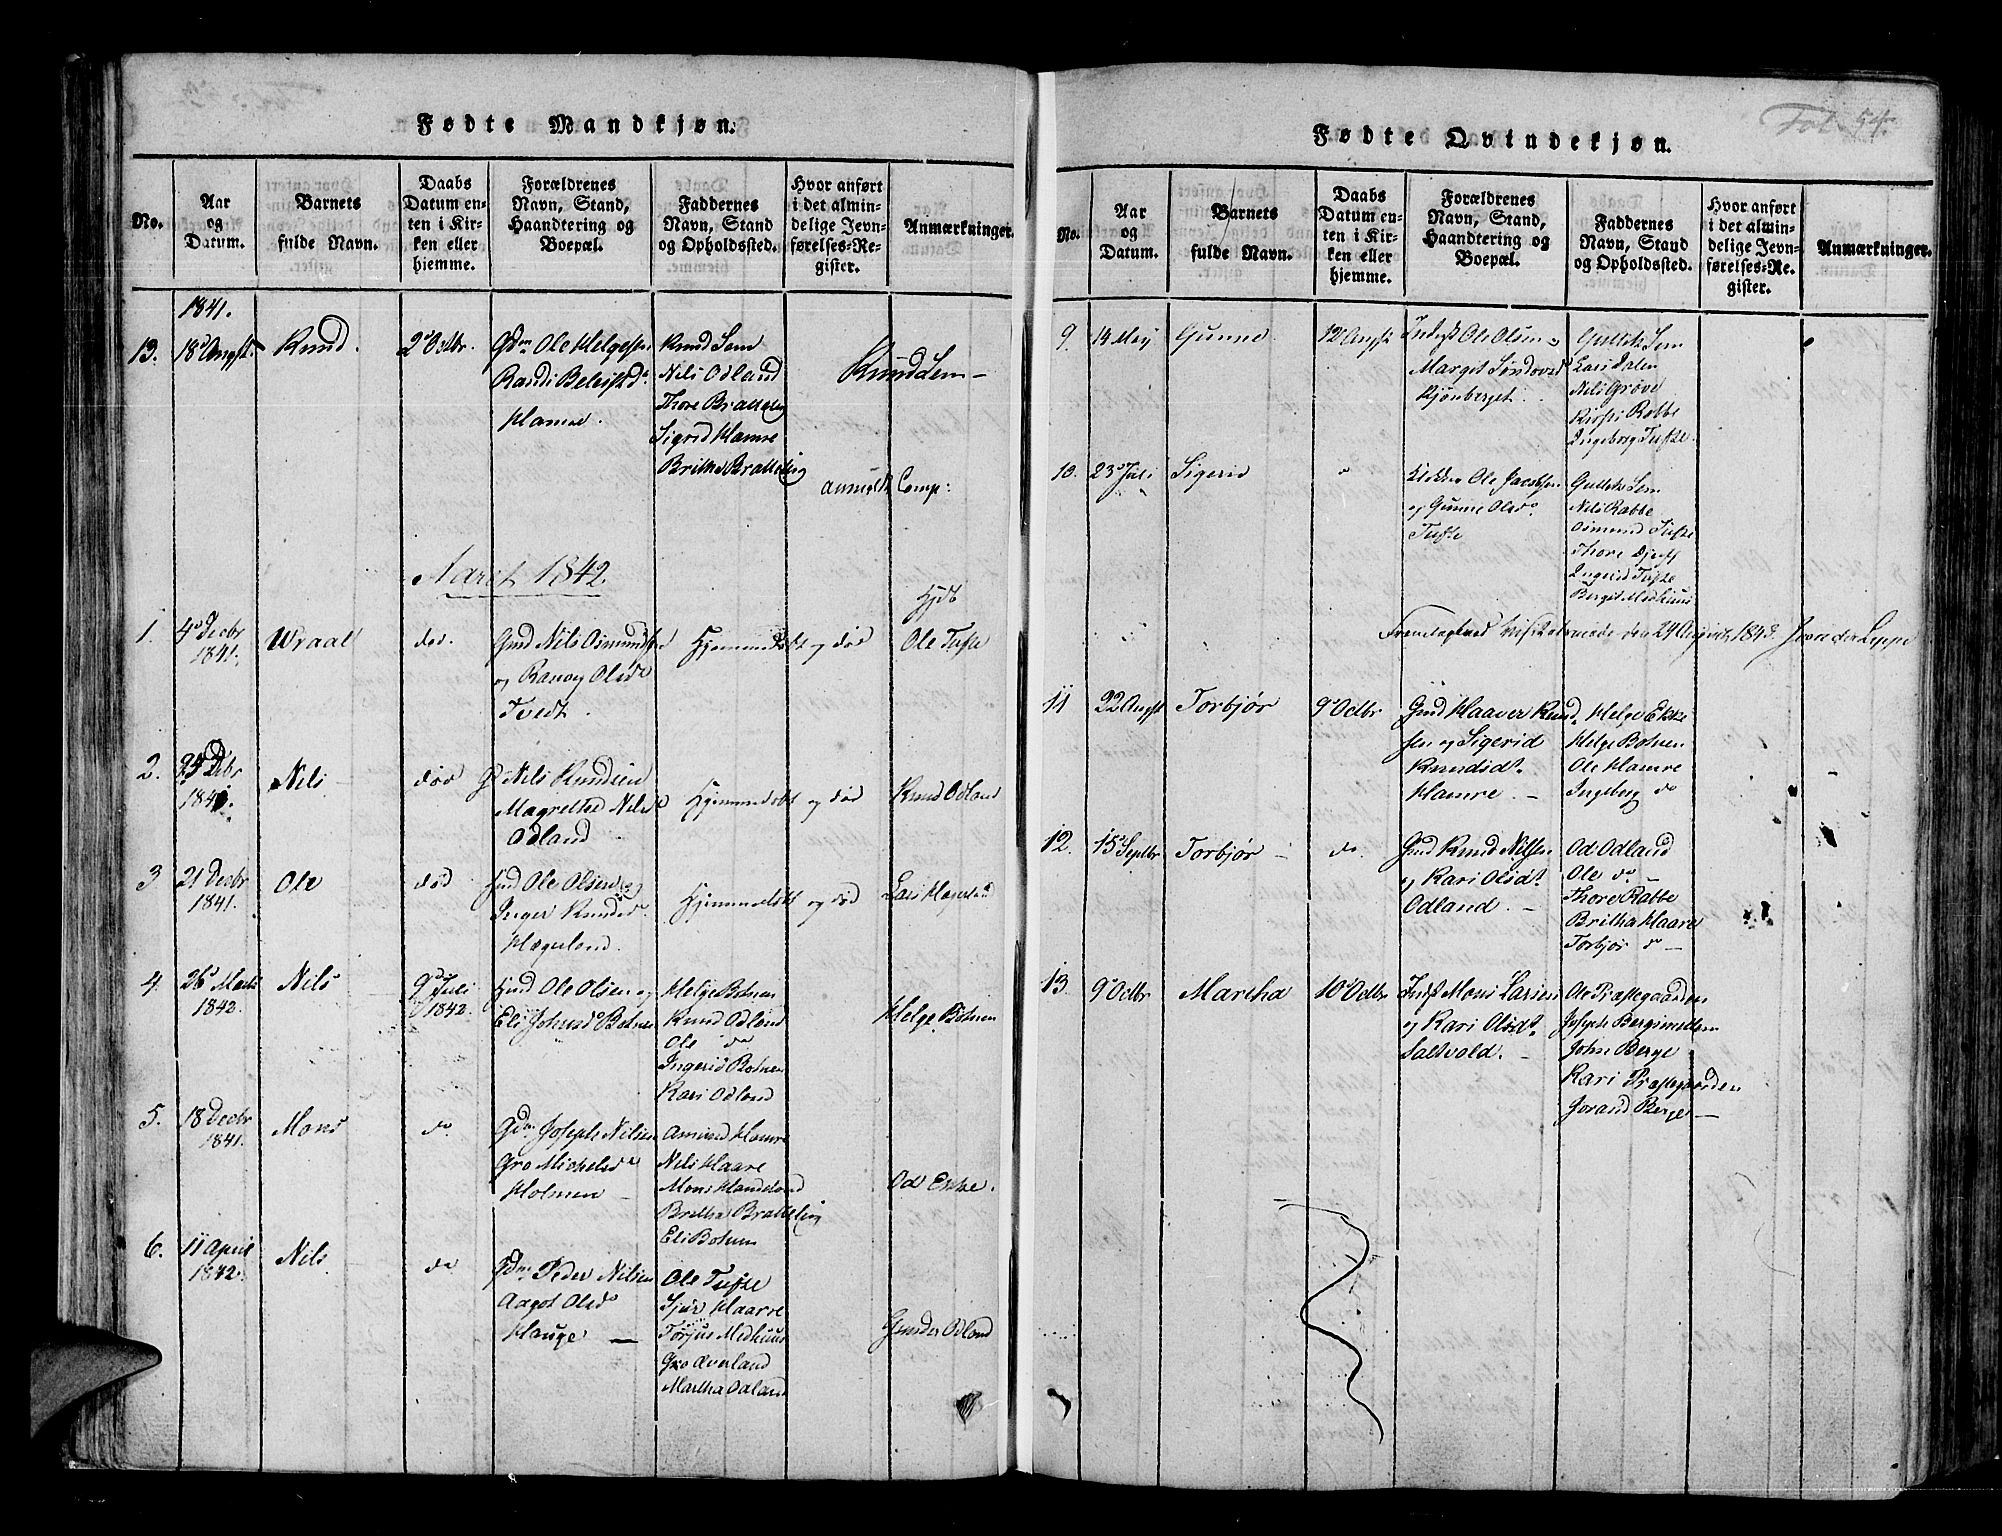 Fødte Mandkjøn.
No.
Aar
og
Datum.
Barnets
fulde Navn.
Daabs
Datum en-
ten i Kir-
ken eller
hjemme.
Forældrenes
Navn, Stand,
Haandtering og
Boepæl.
Faddernes
Navn, Stand
og Opholdssted.
Hvor anført
i det almin-
delige Jevn-
førelses-Re-
gister.
Anmærkninger.
1841.
13. 18 Augst. Knud. 2 Octbr.
Gdm Ole Helgesen
Randi Beleifsd
Hamre.
Knud Sem
Nils Odland
Thore Bratteliy
Sigrid Hamre
Britha Bratteliy
Knud Sem –
anmeldt Comp:
Aaret 1842
1. 4 Decbr
1841. Wraal død.
Gmd Nils Osmunds
og Ranoy Olsd
Tvedt.
Hjemmedøbt og død
Hjdt
Ole Tufte
2. 25 Dcbr
1841. Nils død
G Nils Knudsen
Magrethe Nilsd
Odland
Hjemmedøbt og død
Knud Odland
3 21 Decbr
1841. Ole død
Gmd Ole Olsen og
Inger Knudsd.
Hægeland.
Hjemmedøbt og død
4. 26 Marts
1842. Nils 9 Juli
1842.
Gmd Ole Olsen og
Eli Johnsd Botnen
Helge Botnen
Knud Odland
Ole do
Ingerid Botnen
Kari Odland
Helge Botnen
5. 18 Decbr
1841. Mons do
Gdm Joseph Nilsen
Gro Michelsd
Holmen –
Amund Hamre
Nils Haare
Mons Handeland
Britha Bratteliy
Eli Botnen
Od Ekke.
6. 11 April
1842. Nils do
Gdm Peder Nilsen
Aagot Olsd
Hauge –
Ole Tufte
Sjur Haarre
Torjus Medhuus
Gro Averland
Martha Odland
Odland
Fødte Qvindekjøn.
Fol. 54.
No.
Aar
og
Datum.
Barnets
fulde Navn.
Daabs
Datum en-
ten i Kir-
ken eller
hjemme.
Forældrenes
Navn, Stand,
Haandtering og
Boepæl.
Faddernes
Navn, Stand
og Opholdssted.
Hvor anført
i det almin-
delige Jevn-
førelses-Re-
gister.
Anmærkninger.
9. 14 Mey Gunne 12 Augst
Inderst Ole Olsen
Margit Sondovsd
Kjønberget.
Gulleik Sem
Lars Dalen
Nils Grøve
Kirsti Rabbe
Ingeborg Tufte.
10. 23 Juli Sigerid do
Klokker Ole Jacobsen
og Gunne Olsd
Tufte
Gulleik Sem
Nils Rabbe
Osmund Tufte
Thore
Ingerid Tufte
Bergit Medhuus
den 24 August 1843.
11 22 Augst Torbjør 9 Octbr
Gmd Haaver Knud
sen og Sigerid
Knudsd.
Hamre. –
Helge Ekke
Helge Botnen
Ole Hamre
Ingeborg do
12. 15 Septbr Torbjør – do.
Gmd Knud Nilsen
og Kari Olsd.
Odland. –
Od Odland
Ole do –
Thore Rabbe
Britha Haare
Torbjør do –
13. 9 Octbr Martha 10 Octbr
Inderst Mons Larsen
og Kari Olsd.
Saltvold. –
Ole Præstegaarden
Joseph Bergsmellem
John Berge
Kari Præstegaarden
Jorand Berge –